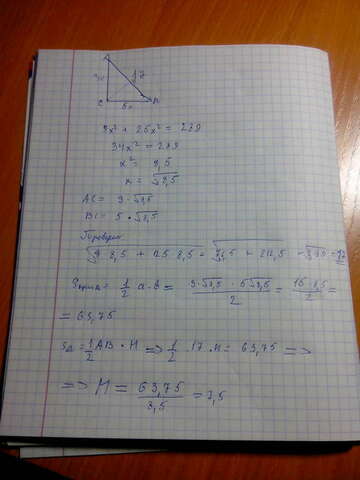 17
3x
C 5x
9x² + 25x² = 289
34x² = 289
x² = 8,5
x = √8,5
AC = 3·√8,5
BC = 5·√8,5
Проверка
√9·8,5 + 25·8,5 = √76,5 + 212,5 = √289 = 17
= 1/2 a·b = 3·√8,5 · 5√8,5 / 2 = 15·8,5 / 2 =
= 63,75
S△ = 1/2 AB·H => 1/2 · 17 · H = 63,75 =>
=> H = 63,75 / 8,5 = 7,5